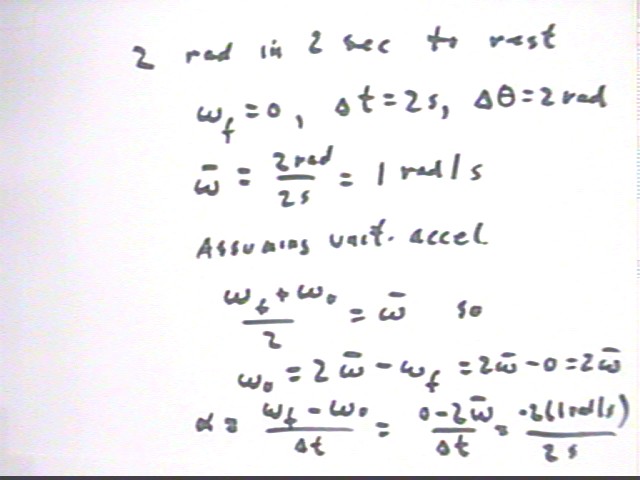 2 rad in 2 sec to rest
ω_f = 0, Δt = 2s, Δθ = 2 rad
ω̄ = 2 rad / 2s = 1 rad/s
Assuming unif. accel
(ω_f + ω_0) / 2 = ω̄ so
ω_0 = 2ω̄ - ω_f = 2ω̄ - 0 = 2ω̄
α = (ω_f - ω_0) / Δt = (0 - 2ω̄) / Δt = -2(1 rad/s) / 2s